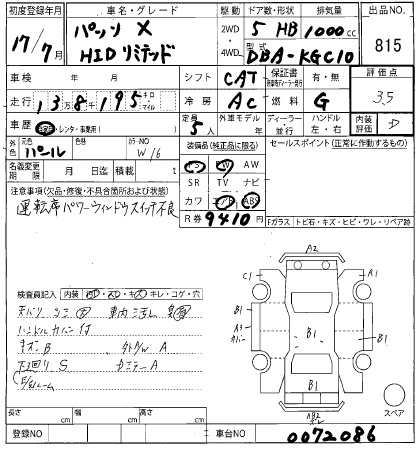 初度登録年月 車名・グレード 駆動 ドア数・形状 排気量 出品NO.
17/7月 パッソ X 2WD 5 HB 1000cc 815
HIDリミテッド 4WD 型式 DBA-KGC10
車検 年 月 シフト CAT 保証書 有・無 評価点
走行 13万8千195 キロ マイル 冷房 AC 燃料 G 3.5
車歴 レンタ・事業用 定員 5人 外車モデル ディーラー・並行 ハンドル 左・右 内装 評 D
外色 元色 パール 色替 カラーNO W16 装備品(純正品に限る) セールスポイント(正常に作動するもの)
名義変更 月 日迄 積載 t PS PW AW
注意事項(欠品・修復・不具合箇所および状態) SR TV ナビ
運転席パワーウィンドウスイッチ不良 カワ エアB ABS
R券 9410円 Fガラス トビ石・キズ・ヒビ・ワレ・リペア跡
A2
C1 A1
検査員記入 内装 キレ・コゲ・穴
B1
A3 B1 B1
ハンドルカバー付
キズB A
下回り S A
B1
長さ cm 幅 cm 高さ cm スペア
登録NO 車台NO 0072086